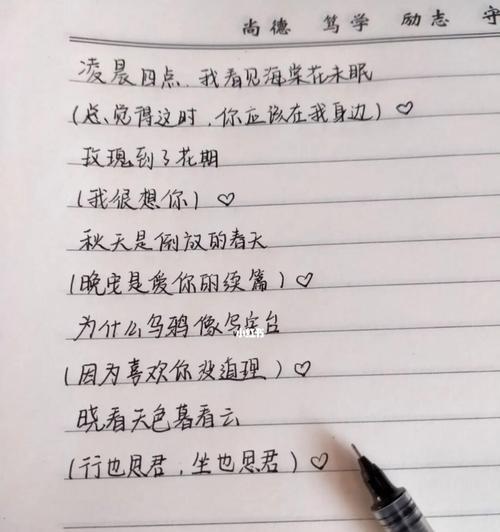 尚德 笃学 励志 守
凌晨四点，我看见海棠花未眠
(总觉得这时，你应该在我身边)♡
玫瑰到了花期
(我很想你)♡
秋天是倒放的春天
(晚安是爱你的续篇)♡
为什么乌鸦像写字台
小红书
(因为喜欢你没道理)♡
晓看天色暮看云
(行也思君，坐也思君)♡